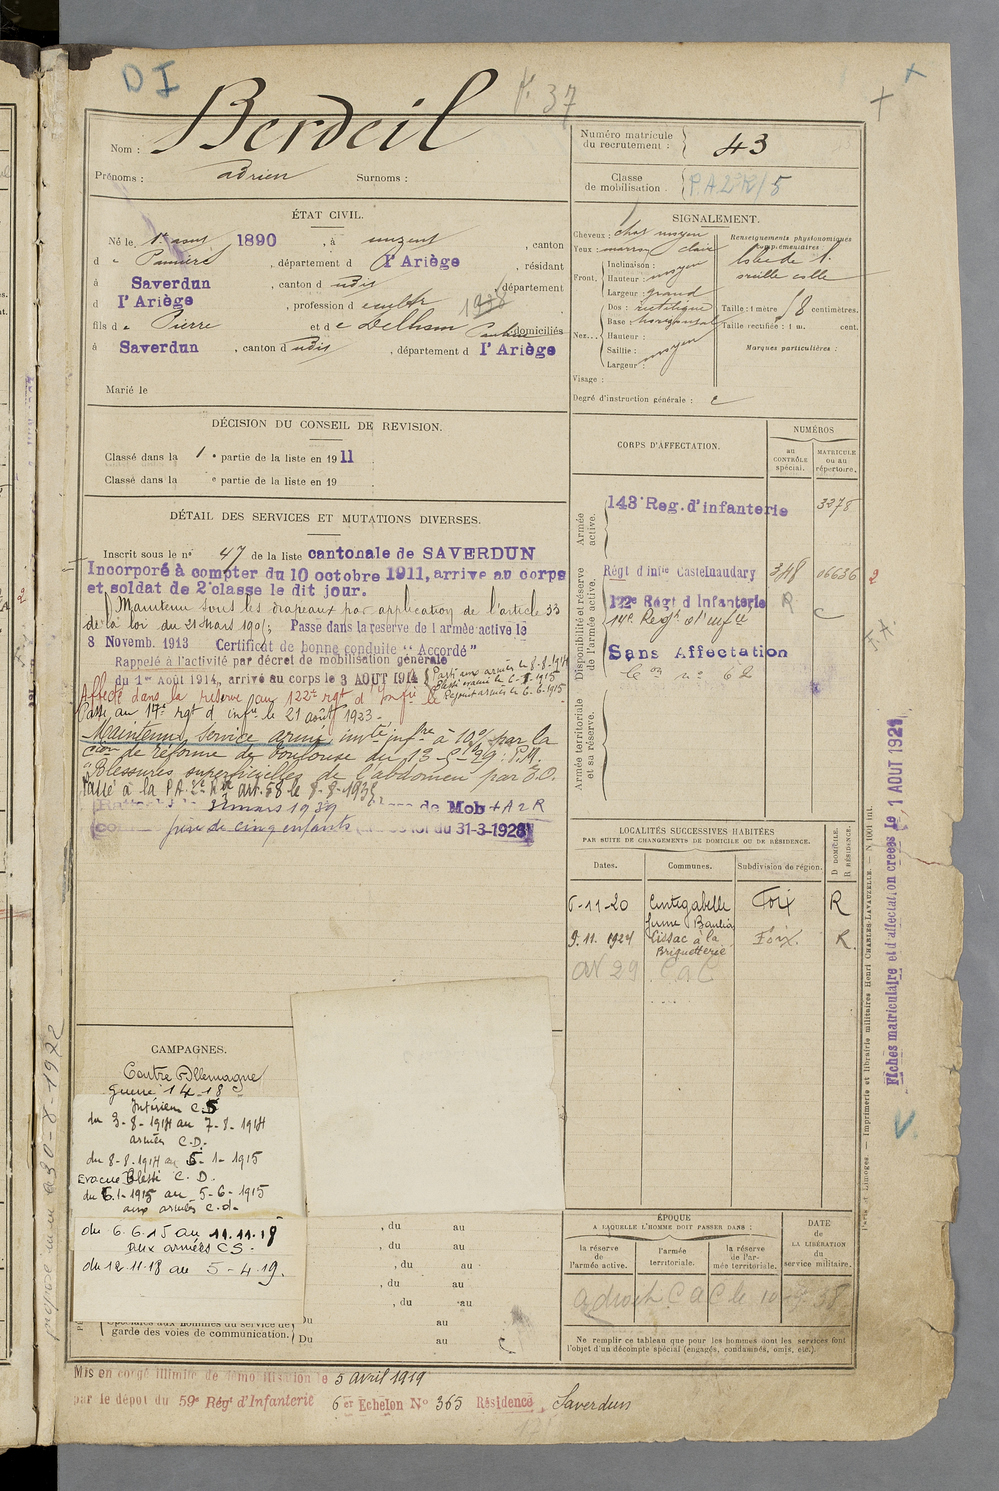 DI
K. 37
Nom : Berdeil
Prénoms : Adrien Surnoms :
Numéro matricule du recrutement : 43
Classe de mobilisation P.A.2eR/5
ÉTAT CIVIL.
Né le 1er aout 1890, à unzent, canton
d e Pamiers, département d l'Ariège, résidant
à Saverdun, canton d udis, département
d l'Ariège, profession d 1938
fils d e Pierre et d e Delham domiciliés
à Saverdun, canton d udis, département d l'Ariège
Marié le
SIGNALEMENT.
Cheveux : chat moyen
Yeux : marron clair
Renseignements physionomiques complémentaires
Inclinaison :
Front. Hauteur : moyen
Largeur : grand
Dos : rectiligne
Base : horizontal
Nez... Hauteur :
Saillie : moyen
Largeur :
oreille colle
Taille : 1 mètre 8 centimètres.
Taille rectifiée : 1 m. cent.
Marques particulières :
Visage :
Degré d'instruction générale : c
DÉCISION DU CONSEIL DE REVISION.
Classé dans la 1 e partie de la liste en 1911
Classé dans la e partie de la liste en 19
DÉTAIL DES SERVICES ET MUTATIONS DIVERSES.
Inscrit sous le n° 47 de la liste cantonale de SAVERDUN
Incorporé à compter du 10 octobre 1911, arrive au corps
et soldat de 2e classe le dit jour.
Maintenu sous les drapeaux par application de l'article 33
de la loi du 21 Mars 1905; Passe dans la reserve de l armée active le
8 Novemb. 1913 Certificat de bonne conduite "Accordé"
Rappelé à l'activité par décret de mobilisation générale
du 1er Aout 1914, arrivé au corps le 3 AOUT 1914
Parti aux armées le 8-8-1914
Blessé evacué le 6-1-1915
Rejoint armées le 6-6-1915
Affecté dans la reserve au 122e rgt d infie le
Passé au 14e rgt d infie le 21 août 1923.
Maintenu service armé invté infre à 10% par la
Cion de réforme de Toulouse du 13-5-29 : P.M.
"Blessures superficielles de l'abdomen par E.O.
Passé à la P.A. 2e R art. 58 le 8-8-1938
22 mars 1939 de Mob + A 2 R
père de cinq enfants loi du 31-3-1928
CORPS D'AFFECTATION.
NUMÉROS
au CONTRÔLE spécial.
MATRICULE ou au répertoire.
Armée active.
143e Reg. d'infanterie 3378
Disponibilité et réserve de l'armée active.
Régt d infie Castelnaudary 348 06636 2
122e Régt d Infanterie R
14e Régt d'infie C
Sans Affectation
Armée territoriale et sa réserve.
LOCALITÉS SUCCESSIVES HABITÉES
PAR SUITE DE CHANGEMENTS DE DOMICILE OU DE RÉSIDENCE.
Dates. Communes. Subdivision de région. D DOMICILE. R RÉSIDENCE.
6-11-20 Cintegabelle Foix R
9.11.1924 Cissac à la Briqueterie Foix. R.
CaC
CAMPAGNES.
Contre Allemagne
guerre 14-18
Intérieur C.S
du 3-8-1914 au 7-8-1914
armées C.D.
du 8-8-1914 au 5-1-1915
Evacué Blessé C.D.
du 6.1-1915 au 5-6-1915
aux armées C.d.
du 6.6.15 au 11.11.18
aux armées CS.
du 12.11.18 au 5-4-19.
, du au
, du au
, du au
, du au
, du au
Du au
garde des voies de communication. Du au
ÉPOQUE
A LAQUELLE L'HOMME DOIT PASSER DANS :
la réserve de l'armée active.
l'armée territoriale.
la réserve de l'armée territoriale.
DATE de LA LIBÉRATION du service militaire.
a droit CaC le 10-9-38
Ne remplir ce tableau que pour les hommes dont les services font
l'objet d'un décompte spécial (engagés, condamnés, omis, etc.).
Mis en congé illimité de démobilisation le 5 avril 1919
par le dépot du 59e Régt d'Infanterie 6er Echelon N° 365 Résidence Saverdun
Fiches matriculaire et d'affectation créées le 1 AOUT 1921
Paris et Limoges. — Imprimerie et librairie militaires Henri CHARLES-LAVAUZELLE.